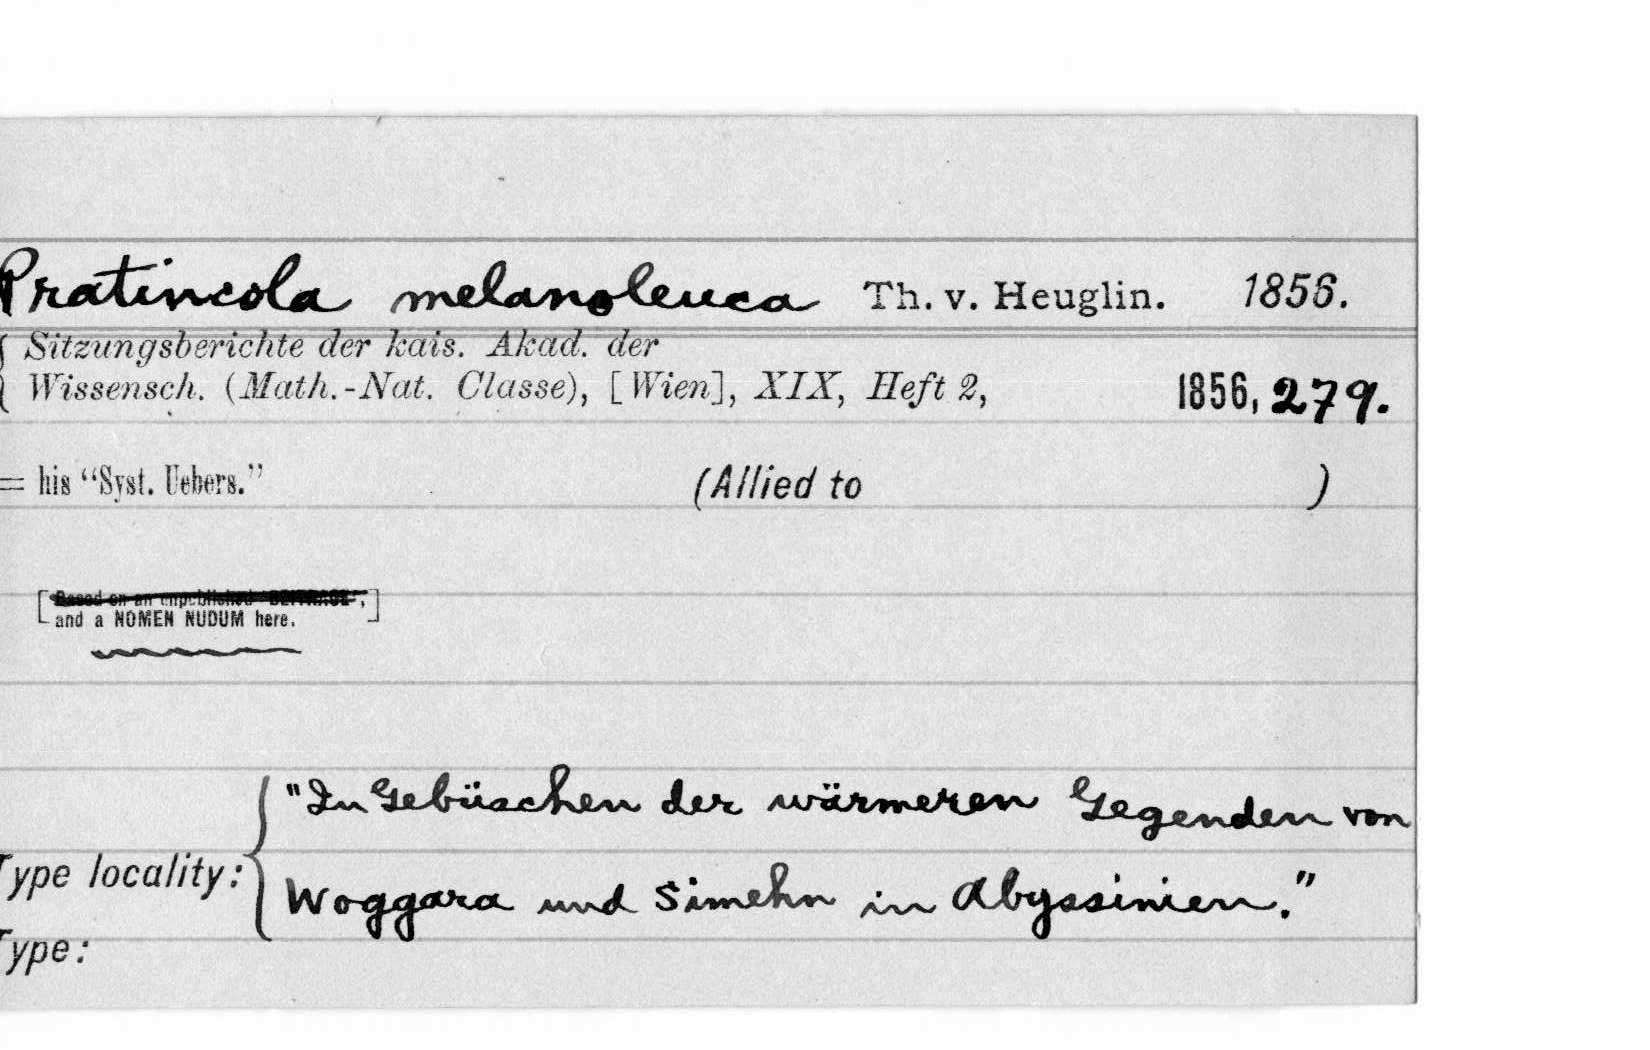 Pratincola melanoleuca Th. v. Heuglin. 1856.
Sitzungsberichte der kais. Akad. der
Wissensch. (Math.-Nat. Classe), [Wien], XIX, Heft 2, 1856, 279.
= his “Syst. Uebers.” (Allied to )
[Based on an unpublished "BEITRÄGE",
and a NOMEN NUDUM here.]
"In Gebüschen der wärmeren Gegenden von
Type locality:
Woggara und Simehn in Abyssinien."
Type: